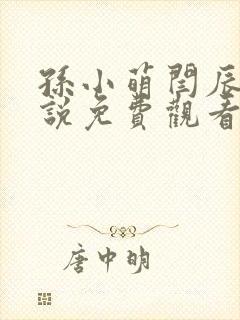 孫小萌閏辰
說免費觀看
唐中明